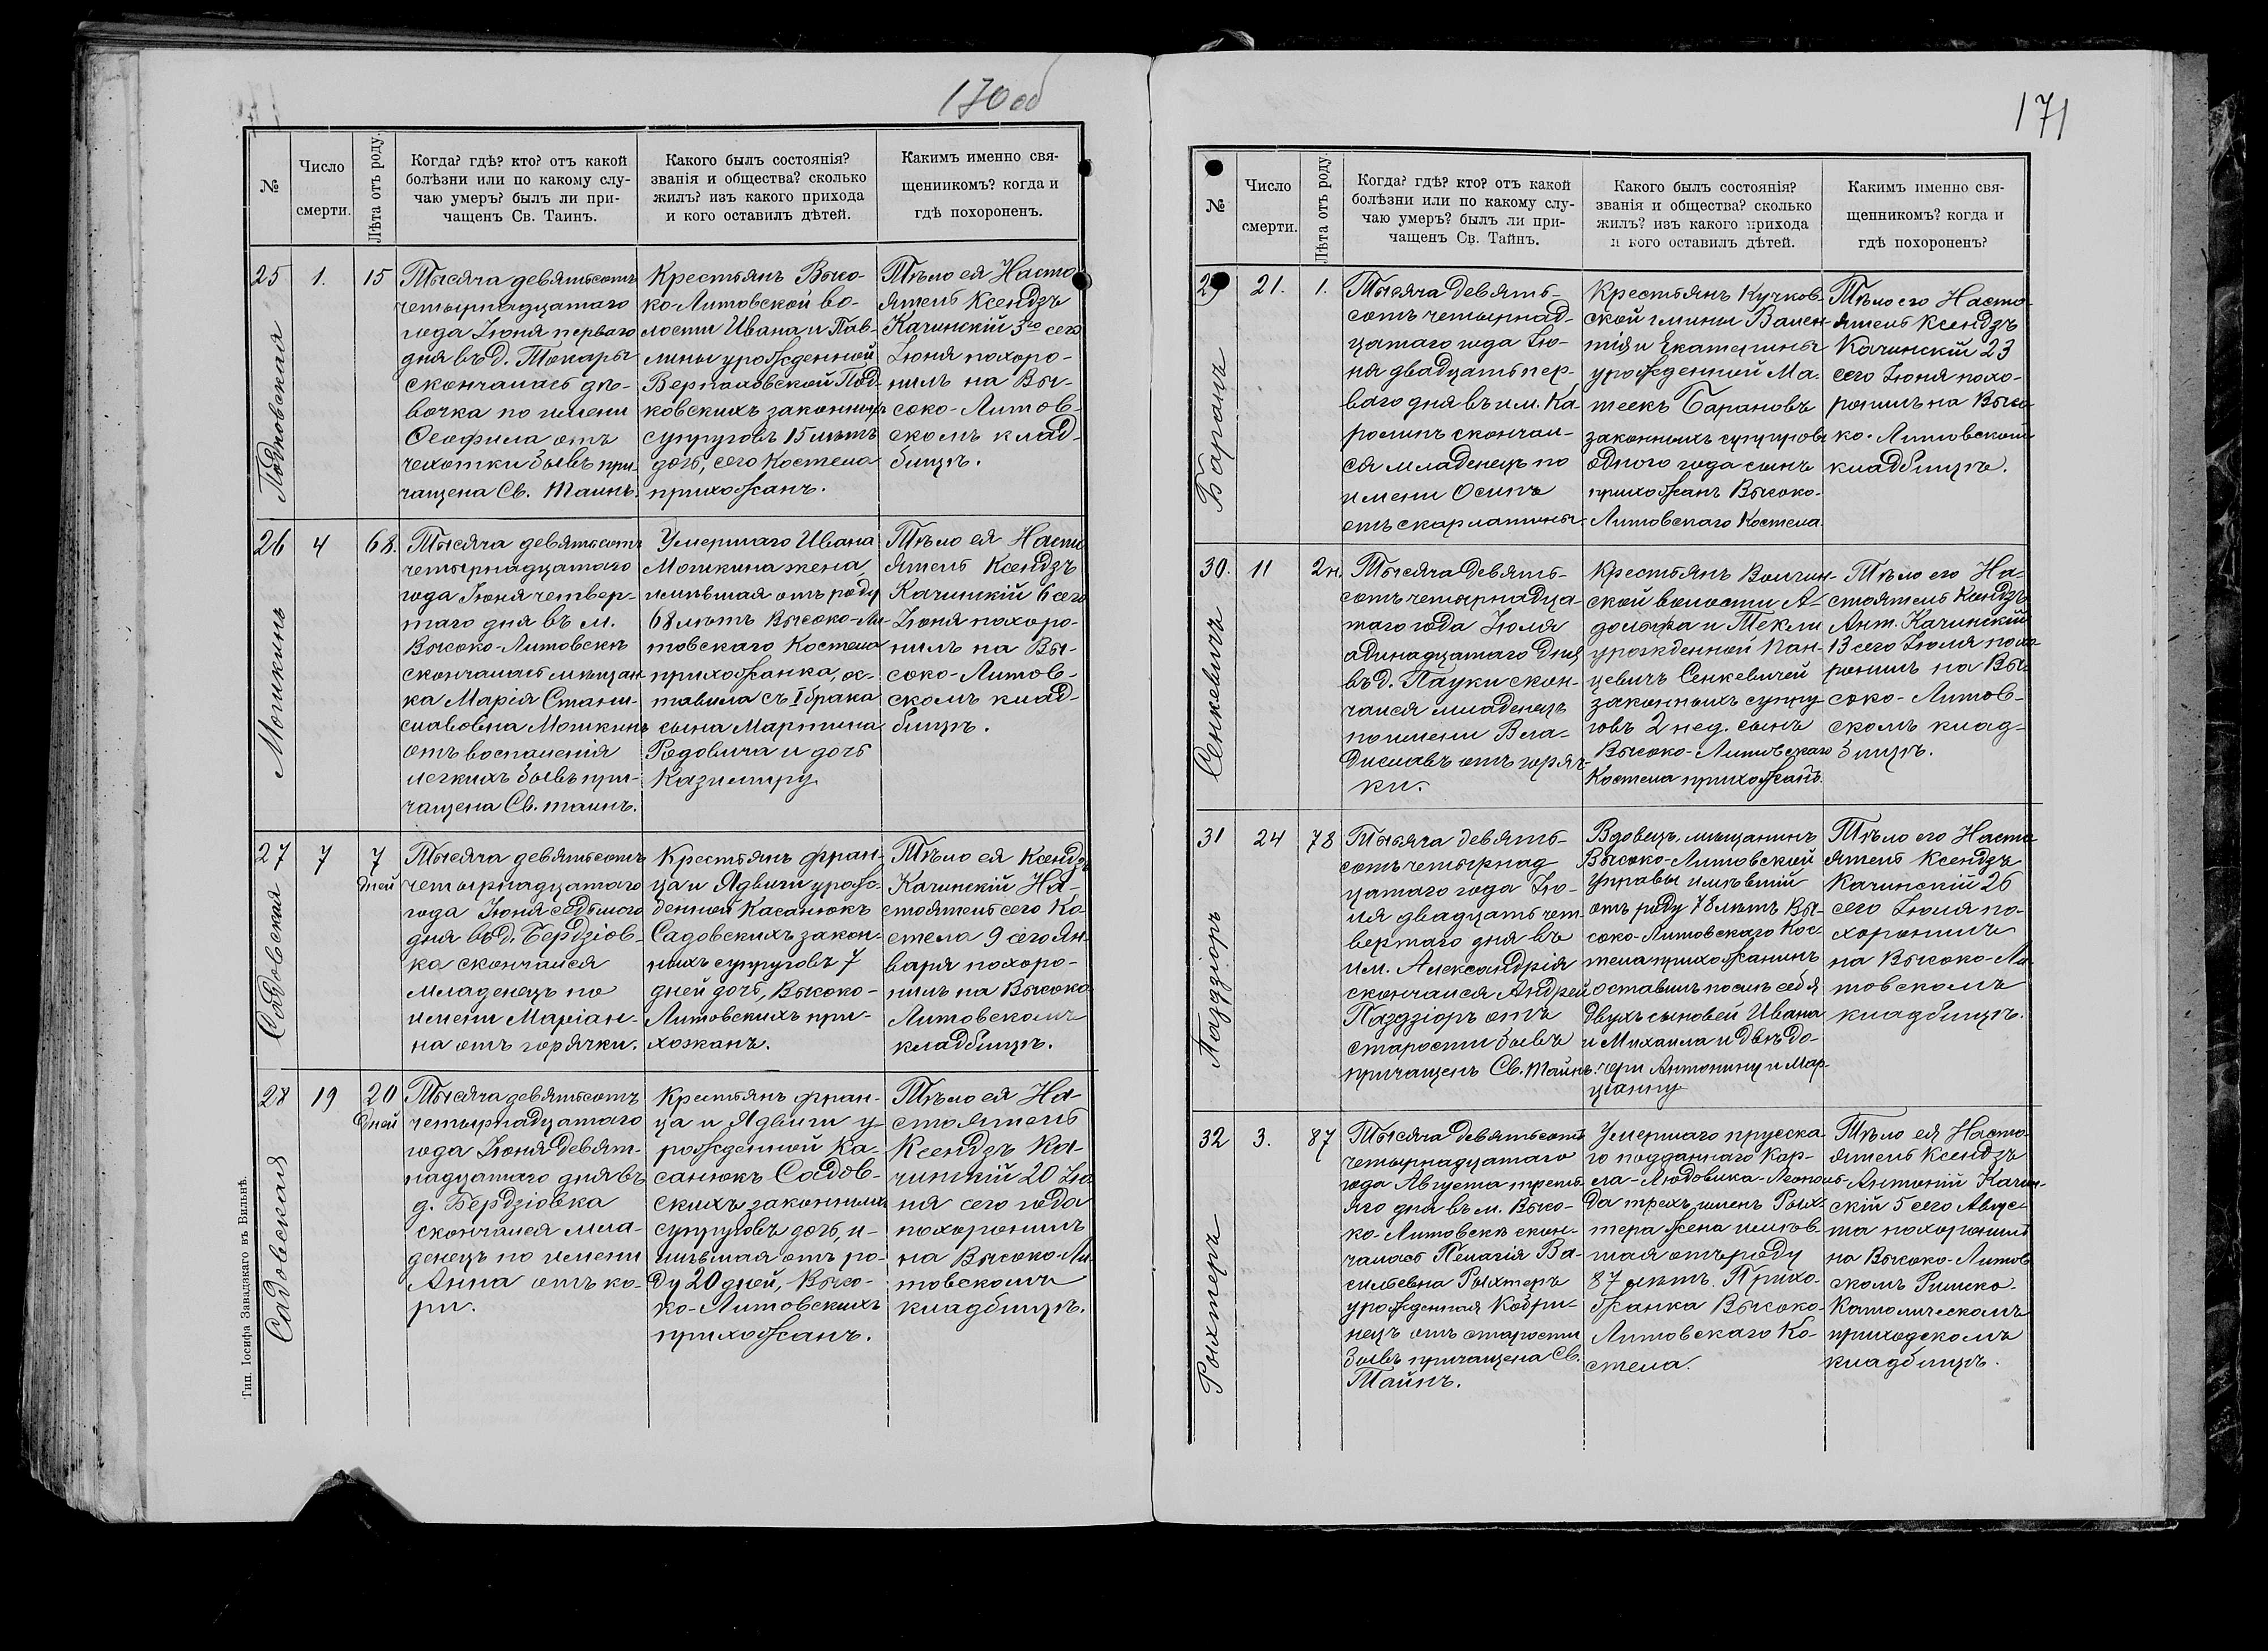 170 об
№
Число
смерти.
Лѣта отъ роду.
Когда? гдѣ? кто? отъ какой
болѣзни или по какому слу-
чаю умеръ? былъ ли при-
чащенъ Св. Таинъ.
Какого былъ состоянія?
званія и общества? сколько
жилъ? изъ какого прихода
и кого оставилъ дѣтей.
Какимъ именно свя-
щенникомъ? когда и
гдѣ похороненъ.
25
1.
15
Тысяча девятьсотъ
четырнадцатаго
года Іюня перваго
дня въ д. Токары
скончалась дѣ-
вочка по имени
Ѳеофила отъ
чехотки бывъ при-
чащена Св. Таинъ.
Крестьянъ Высо-
ко-Литовской во-
лости Ивана и Пав-
лины урожденной
Верпаховской Под-
ковскихъ законныхъ
супруговъ 15 лѣтъ
дочь, сего Костела
прихожанъ.
Тѣло ея Насто
ятель Ксендзъ
Качинскій 3го сего
Іюня похоро-
нилъ на Вы-
соко-Литов-
скомъ клад-
бищѣ.
26
4
68.
Мошкинъ
Тысяча девятьсотъ
четырнадцатаго
года Іюня четвер-
таго дня въ м.
Высоко-Литовскѣ
скончалась мѣщан
ка Марія Стани-
славовна Мошкинъ
отъ воспаленія
легкихъ бывъ при-
чащена Св. таинъ.
Умершаго Ивана
Мошкина жена,
имѣвшая отъ роду
68 лѣтъ Высоко-Ли
товскаго Костела
прихожанка, ос-
тавила съ I брака
сына Мартина
Родовича и дочь
Казимиру
Тѣло ея Насто
ятель Ксендзъ
Качинскій 6 сего
Іюня похоро-
нилъ на Вы-
соко-Литов-
скомъ клад-
бищѣ.
27
7
7
дней
Садовская
Тысяча девятьсотъ
четырнадцатаго
года Іюня седьмого
дня въ д. Бердзіов-
ка скончался
младенецъ по
имени Маріан-
на отъ горячки.
Крестьянъ Фран-
ца и Ядвиги урож-
денной Касанюкъ
Садовскихъ закон-
ныхъ супруговъ 7
дней дочь, Высоко-
Литовскихъ при-
хожанъ.
Тѣло ея Ксендзъ
Качинскій На-
стоятель сего Ко-
стела 9 сего Ян-
варя похоро-
нилъ на Высоко
Литовскомъ
кладбищѣ.
28
19
20
дней
Садовская
Тысяча девятьсотъ
четырнадцатаго
года Іюня девят-
надцатаго дня въ
д. Бердзіовка
скончался мла-
денецъ по имени
Анна отъ ко-
ри.
Крестьянъ Фран-
ца и Ядвиги у-
рожденной Ка-
санюкъ Садов-
скихъ законныхъ
супруговъ дочь, и-
мѣвшая отъ ро-
ду 20 дней, Высо-
ко-Литовскихъ
прихожанъ.
Тѣло ея На-
стоятель
Ксендзъ Ка-
чинскій 20 Ію
ня сего года
похоронилъ
на Высоко-Ли
товскомъ
кладбищѣ.
Тип. Іосифа Завадзкаго въ Вильнѣ.
171
№
Число
смерти.
Лѣта отъ роду.
Когда? гдѣ? кто? отъ какой
болѣзни или по какому слу-
чаю умеръ? былъ ли при-
чащенъ Св. Тайнъ.
Какого былъ состоянія?
званія и общества? сколько
жилъ? изъ какого прихода
и кого оставилъ дѣтей.
Какимъ именно свя-
щенникомъ? когда и
гдѣ похороненъ?
29
21.
1.
Баранъ
Тысяча девять-
сотъ четырнад-
цатаго года Ію-
ня двадцать пер-
ваго дня въ им. Ка-
ролинъ скончал-
ся младенецъ по
имени Осипъ
отъ скарлатины
Крестьянъ Кучков-
ской гмины Вален-
тія и Екатерины
урожденной Ма-
теекъ Барановъ
законныхъ супруговъ
одного года сынъ
прихожанъ Высоко-
Литовскаго Костела.
Тѣло его Насто-
ятель Ксендзъ
Качинскій 23
сего Іюня похо-
ронилъ на Высо
ко-Литовскомъ
кладбищѣ.
30.
11
2 н.
Сенкевичъ
Тысяча девять-
сотъ четырнадца-
таго года Іюля
адинадцатаго дня
въ д. Пауки скон-
чался младенецъ
по имени Вла-
диславъ отъ горяч-
ки.
Крестьянъ Волчин-
ской волости А-
дольфа и Текли
урожденной Пан-
цевичъ Сенкевичей
законныхъ супру-
говъ 2 нед. сынъ
Высоко-Литовскаго
Костела прихожанъ.
Тѣло его На-
стоятель Ксендзъ
Ант. Качинскій
13 сего Іюля похо
ронилъ на Вы-
соко-Литов-
скомъ клад-
бищѣ.
31
24
78
Паздзіоръ
Тысяча девять-
сотъ четырнад
цатаго года Ію-
ля двадцать чет-
вертаго дня въ
им. Александрія
скончался Андрей
Паздзіоръ отъ
старости бывъ
причащенъ Св. Тайнъ.
Вдовецъ, мѣщанинъ
Высоко-Литовской
Управы имѣвшій
отъ роду 78 лѣтъ Вы-
соко-Литовскаго Кос-
тела прихожанинъ
оставилъ послѣ себя
двухъ сыновей Ивана
и Михаила и двѣ до-
чери Антонину и Мар-
цianну
Тѣло его Насто
ятель Ксендзъ
Качинскій 26
сего Іюля по-
хоронилъ
на Высоко-Ли-
товскомъ
кладбищѣ.
32
3.
87
Рыхтеръ
Тысяча девятьсотъ
четырнадцатаго
года Августа треть-
яго дня въ м. Высо-
ко-Литовскѣ скон-
чалась Пелагія Ва-
сильевна Рыхтеръ
урожденная Кобри-
нецъ отъ старости
бывъ причащена Св.
Тайнъ.
Умершаго прусска-
го подданнаго Кар-
ла-Людовика-Леополь-
да трехъ именъ Рых-
тера жена имѣв-
шая отъ роду
87 лѣтъ. Прихо-
жанка Высоко-
Литовскаго Ко-
стела.
Тѣло ея Насто-
ятель Ксендзъ
Антоній Качин-
скій 5 сего Авгус-
та похоронилъ
на Высоко-Литов
скомъ Римско-
Католическомъ
приходскомъ
кладбищѣ.